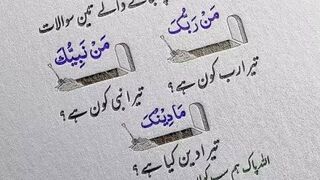 والے تین سوالات
مَنْ رَبُّكَ
مَنْ نَبِيُّكَ
تیرا رب کون ہے ؟
تیرا نبی کون ہے ؟
مَا دِيْنُكَ
تیرا دین کیا ہے ؟
اللہ پاک ہم سب کو